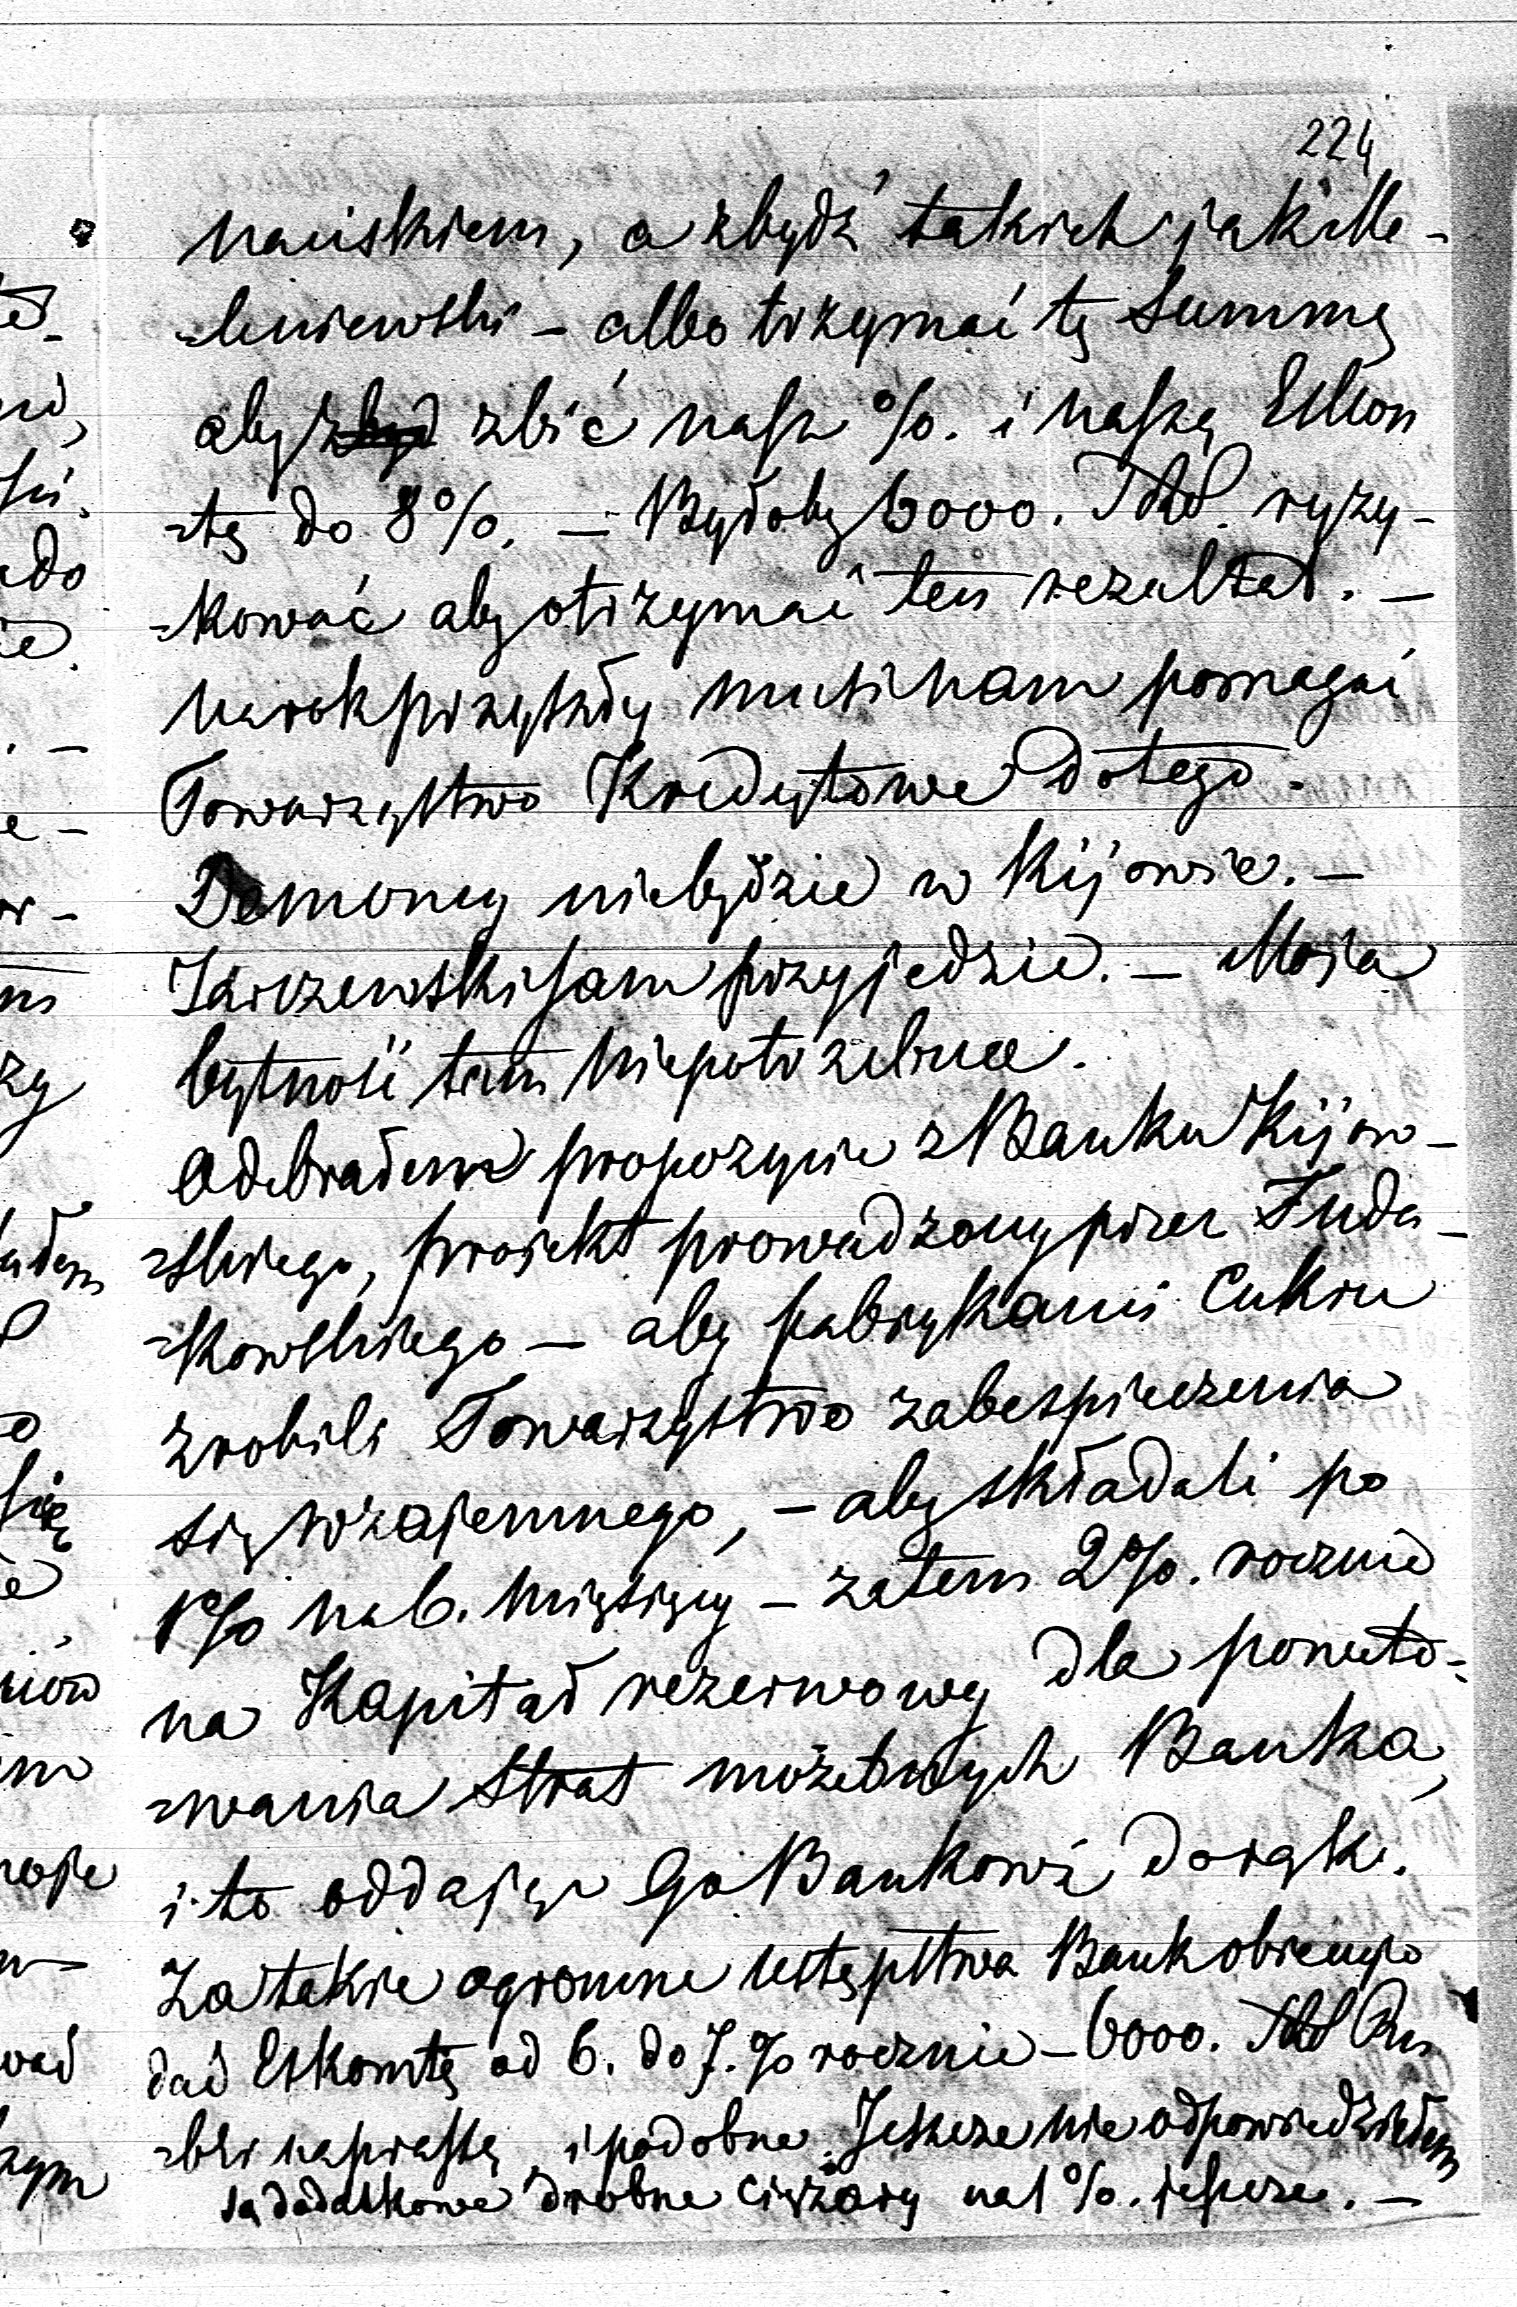 224
naciskiem, a zbydź takich jak Me-
-leniewski – albo trzymać tę Summę
aby zbyd zbić nasz %. i naszą Eskon
-tę do 8%. – Byłoby 6000. Rbl. ryzy-
-kować aby otrzymać ten rezultat. –
na rok przyszły musi nam pomagać
Towarzystwo Kredytowe do tego.
Demoncy niebędzie w Kijowie. –
Zarczewski sam przyjedzie. – Moja
bytność tam niepotrzebna.
Odebrałem propozycie z Banku Kijow-
-skiego, projekt prowadzony przez Fuda-
-kowskiego – aby fabrykanci Cukru
zrobili Towarzystwo zabespieczenia
się wzajemnego, – aby składali po
1% na 6. miesięcy – zatem 2%. rocznie
na Kapitał rezerwowy dla poweto-
-wania Strat możebnych Banka,
i to oddając Go Bankowi do rąk.
Za takie ogromne ustępstwa Bank obiecuje
dać Eskomtę od 6. do 7. % rocznie – 6000. Rbl Ru
-bli na prasę i podobne. Jeszcze nie odpowiedziałem
są dodatkowe drobne ciężary na 1%. jeszcze. –